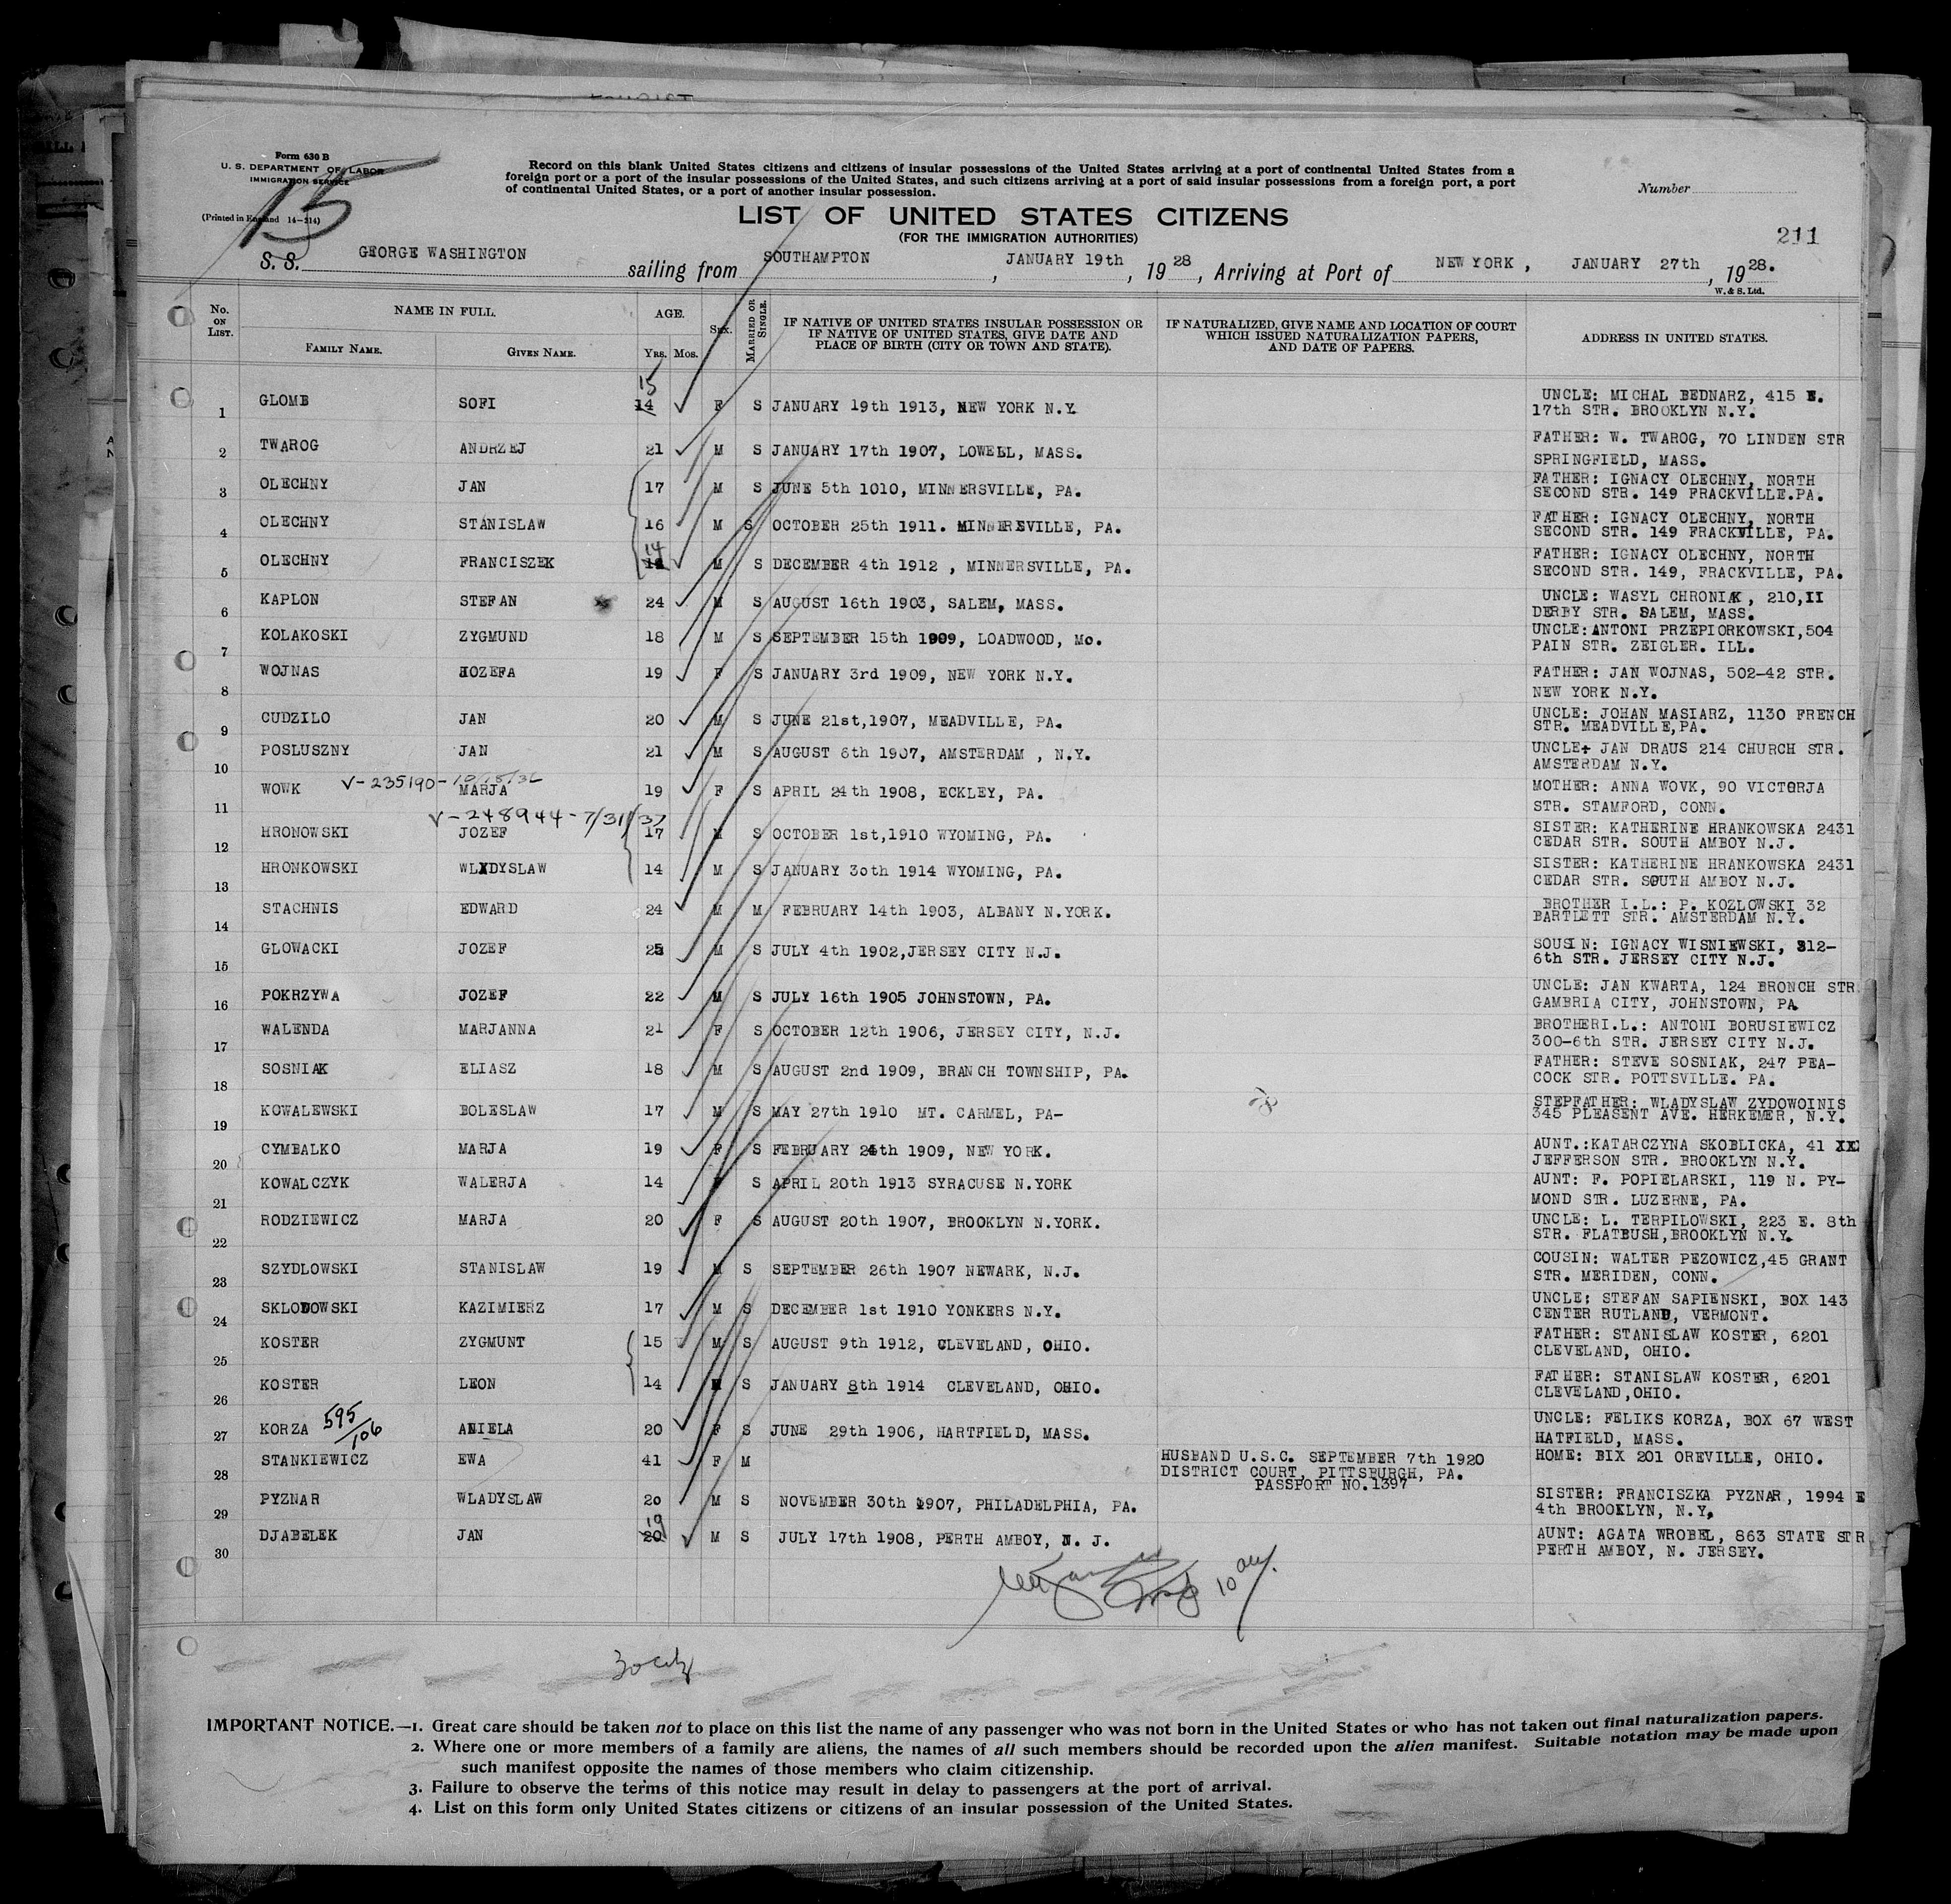 Form 630 B
U. S. DEPARTMENT OF LABOR
IMMIGRATION SERVICE
(Printed in England 14-214)
15
Record on this blank United States citizens and citizens of insular possessions of the United States arriving at a port of continental United States from a
foreign port or a port of the insular possessions of the United States, and such citizens arriving at a port of said insular possessions from a foreign port, a port
of continental United States, or a port of another insular possession.
Number
LIST OF UNITED STATES CITIZENS
(FOR THE IMMIGRATION AUTHORITIES)
211
S. S. GEORGE WASHINGTON sailing from SOUTHAMPTON, JANUARY 19th, 1928, Arriving at Port of NEW YORK, JANUARY 27th, 1928.
W. & S. Ltd.
No. ON LIST. NAME IN FULL. AGE. SEX. MARRIED OR SINGLE. IF NATIVE OF UNITED STATES INSULAR POSSESSION OR IF NATIVE OF UNITED STATES, GIVE DATE AND PLACE OF BIRTH (CITY OR TOWN AND STATE). IF NATURALIZED, GIVE NAME AND LOCATION OF COURT WHICH ISSUED NATURALIZATION PAPERS, AND DATE OF PAPERS. ADDRESS IN UNITED STATES.
FAMILY NAME. GIVEN NAME. YRS. MOS.
1 GLOMB SOFI 14 15 F S JANUARY 19th 1913, NEW YORK N.Y. UNCLE: MICHAL BEDNARZ, 415 E.
17th STR. BROOKLYN N.Y.
2 TWAROG ANDRZEJ 21 M S JANUARY 17th 1907, LOWELL, MASS. FATHER: W. TWAROG, 70 LINDEN STR
SPRINGFIELD, MASS.
3 OLECHNY JAN 17 M S JUNE 5th 1010, MINNERSVILLE, PA. FATHER: IGNACY OLECHNY, NORTH
SECOND STR. 149 FRACKVILLE.PA.
4 OLECHNY STANISLAW 16 M S OCTOBER 25th 1911. MINNERSVILLE, PA. FATHER: IGNACY OLECHNY, NORTH
SECOND STR. 149 FRACKVILLE, PA.
5 OLECHNY FRANCISZEK 14 M S DECEMBER 4th 1912 , MINNERSVILLE, PA. FATHER: IGNACY OLECHNY, NORTH
SECOND STR. 149, FRACKVILLE, PA.
6 KAPLON STEFAN 24 M S AUGUST 16th 1903, SALEM, MASS. UNCLE: WASYL CHRONIAK, 210,II
DERBY STR. SALEM, MASS.
7 KOLAKOSKI ZYGMUND 18 M S SEPTEMBER 15th 1909, LOADWOOD, Mo. UNCLE:ANTONI PRZEPIORKOWSKI,504
PAIN STR. ZEIGLER. ILL.
8 WOJNAS JOZEFA 19 F S JANUARY 3rd 1909, NEW YORK N.Y. FATHER: JAN WOJNAS, 502-42 STR.
NEW YORK N.Y.
9 CUDZILO JAN 20 M S JUNE 21st,1907, MEADVILLE, PA. UNCLE: JOHAN MASIARZ, 1130 FRENCH
STR. MEADVILLE,PA.
10 POSLUSZNY JAN 21 M S AUGUST 6th 1907, AMSTERDAM , N.Y. UNCLE+ JAN DRAUS 214 CHURCH STR.
AMSTERDAM N.Y.
V-235190-10/15/36
11 WOWK MARJA 19 F S APRIL 24th 1908, ECKLEY, PA. MOTHER: ANNA WOVK, 90 VICTORJA
STR. STAMFORD, CONN.
V-248944-7/31/37
12 HRONOWSKI JOZEF 17 M S OCTOBER 1st,1910 WYOMING, PA. SISTER: KATHERINE HRANKOWSKA 2431
CEDAR STR. SOUTH AMBOY N.J.
13 HRONKOWSKI WLADYSLAW 14 M S JANUARY 30th 1914 WYOMING, PA. SISTER: KATHERINE HRANKOWSKA 2431
CEDAR STR. SOUTH AMBOY N.J.
14 STACHNIS EDWARD 24 M M FEBRUARY 14th 1903, ALBANY N.YORK. BROTHER I.L.: P. KOZLOWSKI 32
BARTLETT STR. AMSTERDAM N.Y.
15 GLOWACKI JOZEF 25 M S JULY 4th 1902,JERSEY CITY N.J. SOUSIN: IGNACY WISNIEWSKI, 312-
6th STR. JERSEY CITY N.J.
16 POKRZYWA JOZEF 22 M S JULY 16th 1905 JOHNSTOWN, PA. UNCLE: JAN KWARTA, 124 BRONCH STR.
GAMBRIA CITY, JOHNSTOWN, PA.
17 WALENDA MARJANNA 21 F S OCTOBER 12th 1906, JERSEY CITY, N.J. BROTHERI.L.: ANTONI BORUSIEWICZ
300-6th STR. JERSEY CITY N.J.
18 SOSNIAK ELIASZ 18 M S AUGUST 2nd 1909, BRANCH TOWNSHIP, PA. FATHER: STEVE SOSNIAK, 247 PEA-
COCK STR. POTTSVILLE. PA.
19 KOWALEWSKI BOLESLAW 17 M S MAY 27th 1910 MT. CARMEL, PA- STEPFATHER: WLADYSLAW ZYDOWOINIS
345 PLEASENT AVE. HERKEMER, N.Y.
20 CYMBALKO MARJA 19 F S FEBRUARY 24th 1909, NEW YORK. AUNT.:KATARCZYNA SKOBLICKA, 41
JEFFERSON STR. BROOKLYN N.Y.
21 KOWALCZYK WALERJA 14 F S APRIL 20th 1913 SYRACUSE N.YORK AUNT: F. POPIELARSKI, 119 N. PY-
MOND STR. LUZERNE, PA.
22 RODZIEWICZ MARJA 20 F S AUGUST 20th 1907, BROOKLYN N.YORK. UNCLE: L. TERPILOWSKI, 223 E. 8th
STR. FLATBUSH,BROOKLYN N.Y.
23 SZYDLOWSKI STANISLAW 19 M S SEPTEMBER 26th 1907 NEWARK, N.J. COUSIN: WALTER PEZOWICZ,45 GRANT
STR. MERIDEN, CONN.
24 SKLODOWSKI KAZIMIERZ 17 M S DECEMBER 1st 1910 YONKERS N.Y. UNCLE: STEFAN SAPIENSKI, BOX 143
CENTER RUTLAND, VERMONT.
25 KOSTER ZYGMUNT 15 M S AUGUST 9th 1912, CLEVELAND, OHIO. FATHER: STANISLAW KOSTER, 6201
CLEVELAND, OHIO.
26 KOSTER LEON 14 M S JANUARY 8th 1914 CLEVELAND, OHIO. FATHER: STANISLAW KOSTER, 6201
CLEVELAND,OHIO.
27 KORZA 595/106 ANIELA 20 F S JUNE 29th 1906, HARTFIELD, MASS. UNCLE: FELIKS KORZA, BOX 67 WEST
HATFIELD, MASS.
28 STANKIEWICZ EWA 41 F M HUSBAND U.S.C. SEPTEMBER 7th 1920 HOME: BIX 201 OREVILLE, OHIO.
DISTRICT COURT, PITTSBURGH, PA.
PASSPORT NO.1397
29 PYZNAR WLADYSLAW 20 M S NOVEMBER 30th 1907, PHILADELPHIA, PA. SISTER: FRANCISZKA PYZNAR, 1994 E
4th BROOKLYN, N.Y,
30 DJABELEK JAN 20 19 M S JULY 17th 1908, PERTH AMBOY, N. J. AUNT: AGATA WROBEL, 863 STATE STR
PERTH AMBOY, N. JERSEY.
IMPORTANT NOTICE.—1. Great care should be taken not to place on this list the name of any passenger who was not born in the United States or who has not taken out final naturalization papers.
2. Where one or more members of a family are aliens, the names of all such members should be recorded upon the alien manifest. Suitable notation may be made upon
such manifest opposite the names of those members who claim citizenship.
3. Failure to observe the terms of this notice may result in delay to passengers at the port of arrival.
4. List on this form only United States citizens or citizens of an insular possession of the United States.